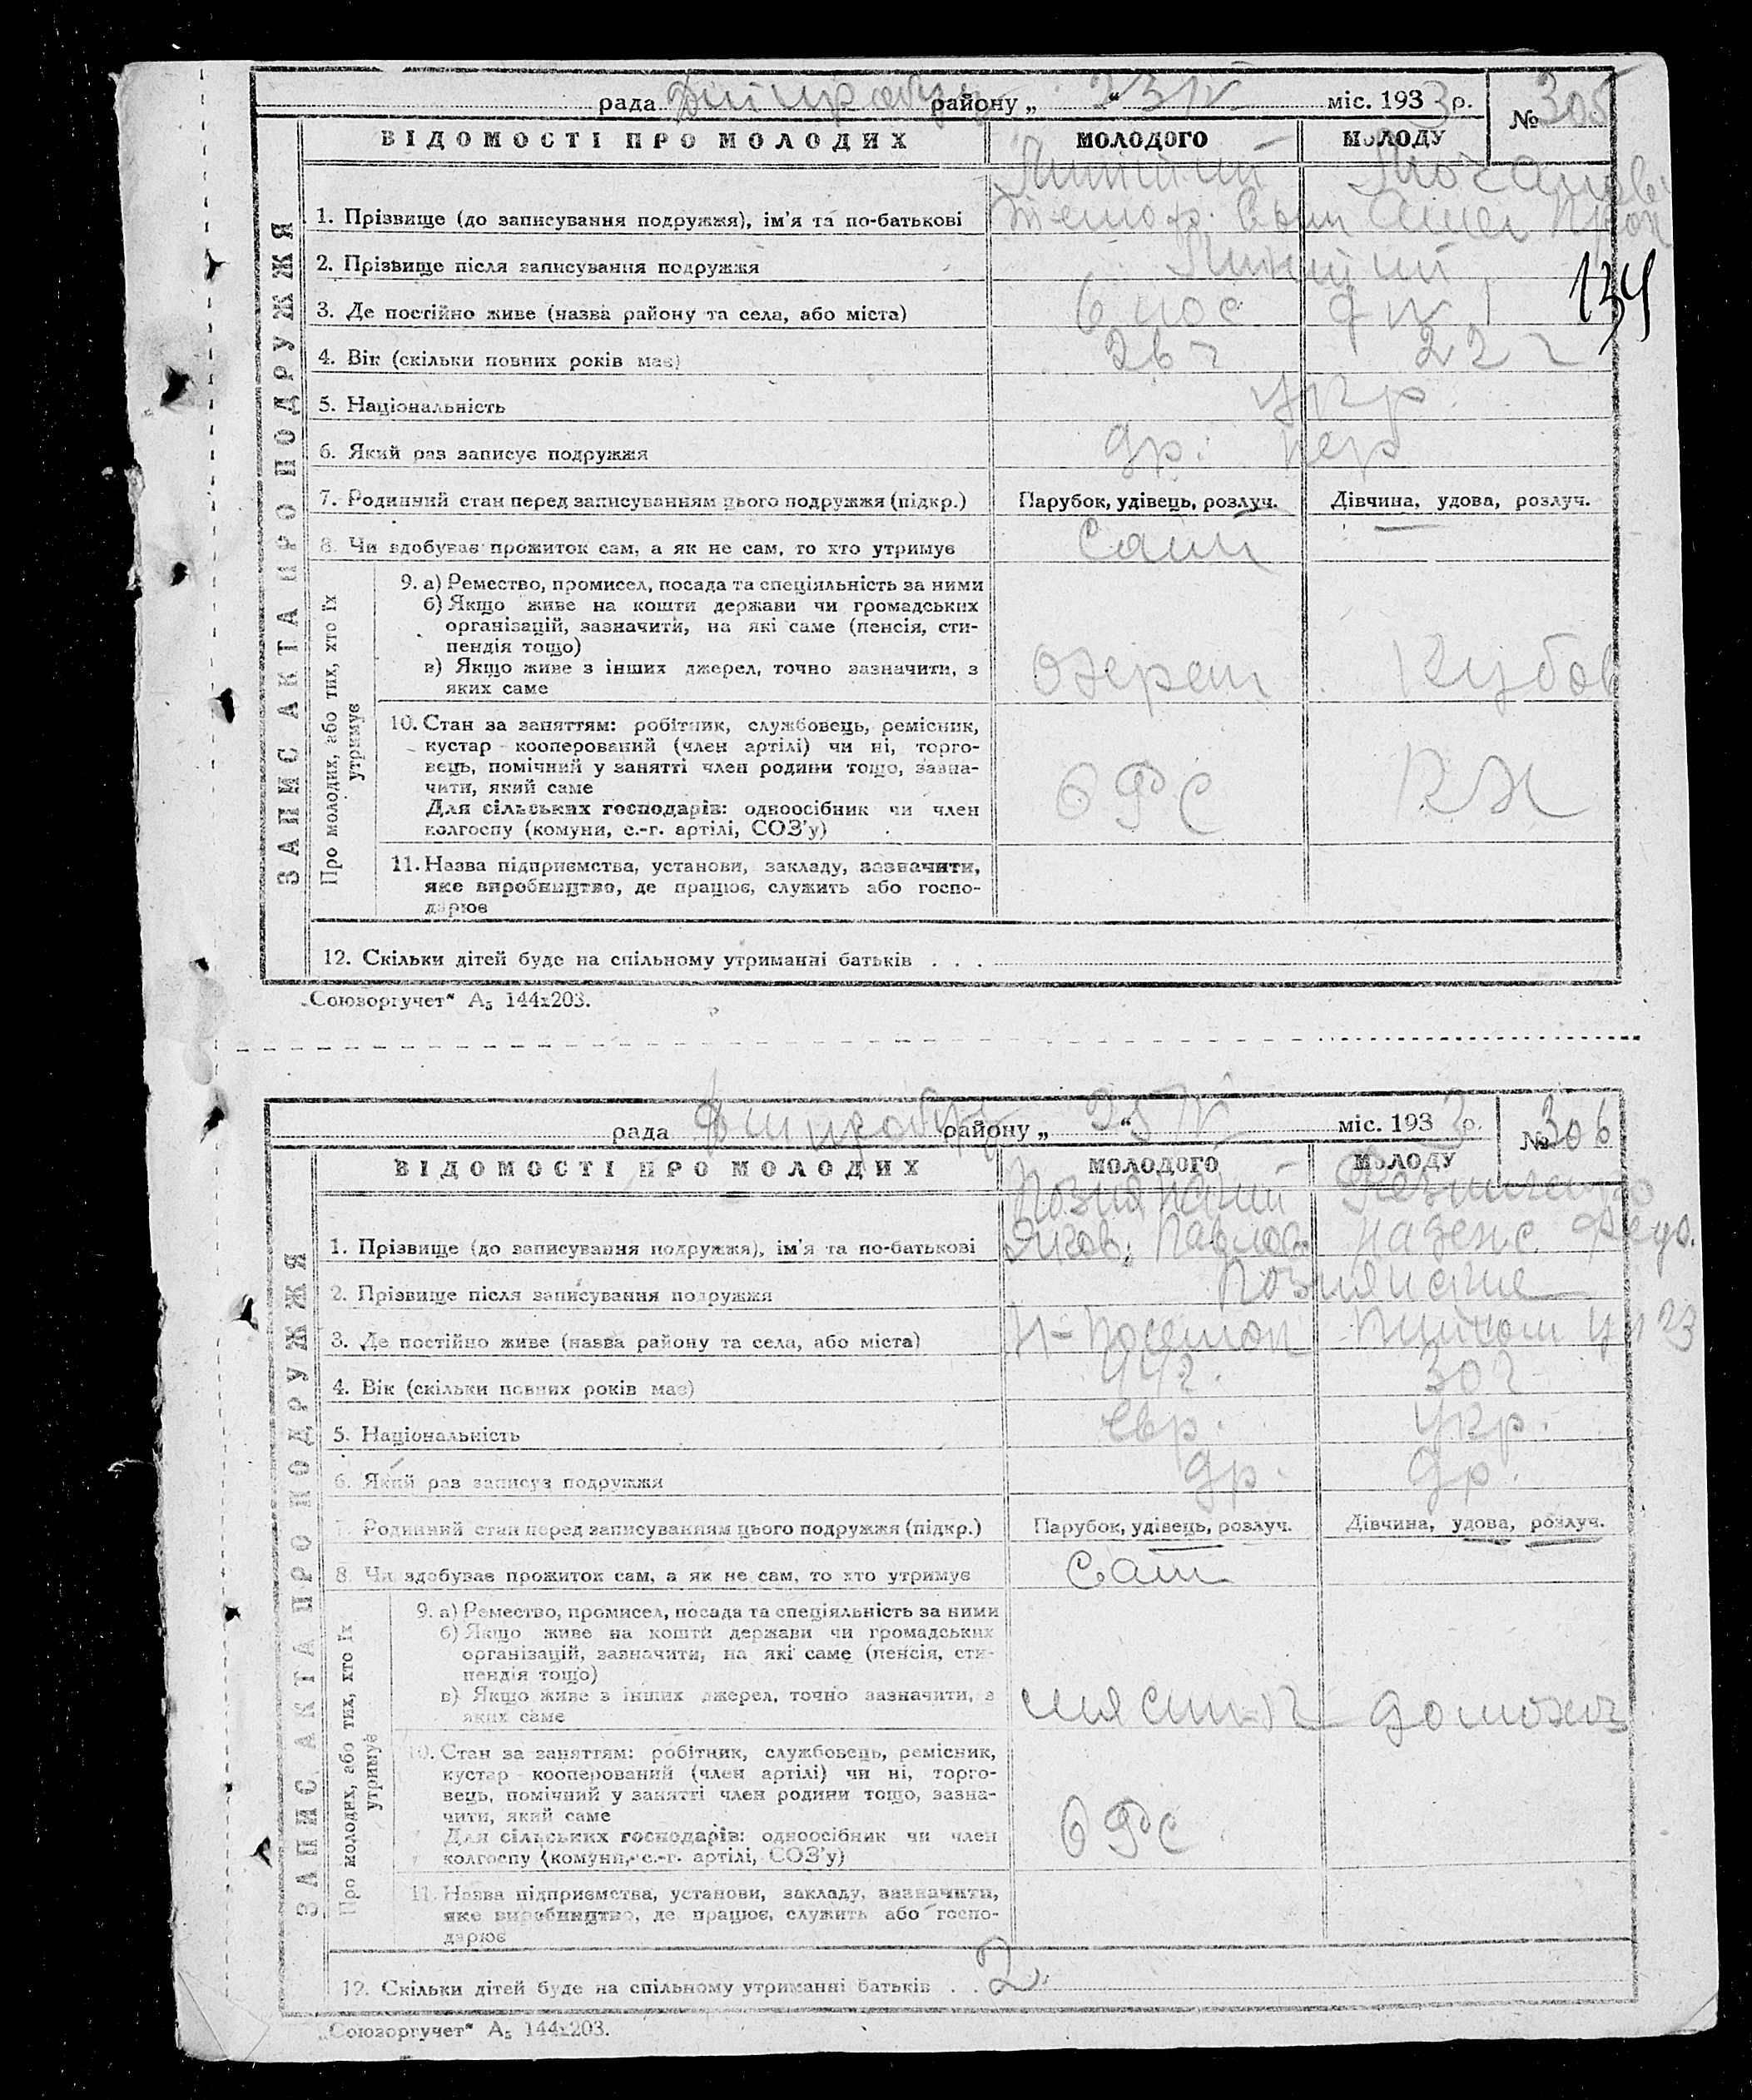 рада районе „ 23 IV “ міс. 1933 р. № 305
ВІДОМОСТІ ПРО МОЛОДИХ МОЛОДОГО МОЛОДУ
ЗАПИС АКТА ПРО ПОДРУЖЖЯ
1. Прізвище (до записування подружжя), ім'я та по-батькові
2. Прізвище після записування подружжя
3. Де постійно живе (назва району та села, або міста)
134
4. Вік (скільки повних років має) 26 г 22 г
5. Національність укр.
6. Який раз записує подружжя др. пер
7. Родинний стан перед записуванням цього подружжя (підкр.) Парубок, удівець, розлуч. Дівчина, удова, розлуч.
8. Чи здобуває прожиток сам, а як не сам, то хто утримує Сами
Про молодих, або тих, хто їх утримує
9. а) Ремество, промисел, посада та спеціяльність за ними
б) Якщо живе на кошти держави чи громадських
організацій, зазначити, на які саме (пенсія, сти-
пендія тощо)
в) Якщо живе з інших джерел, точно зазначити, з
яких саме
10. Стан за заняттям: робітник, службовець, ремісник,
кустар - кооперований (член артілі) чи ні, торго-
вець, помічний у занятті член родини тощо, зазна-
чити, який саме
Для сільських господарів: одноосібник чи член
колгоспу (комуни, с.-г. артілі, СОЗ'у)
11. Назва підприємства, установи, закладу, зазначити,
яке виробництво, де працює, служить або госпо-
дарює
12. Скільки дітей буде на спільному утриманні батьків . . .
„Союзоргучет“ А₅ 144х203.
рада району „ 23 IV “ міс. 1933 р. № 306
ВІДОМОСТІ ПРО МОЛОДИХ МОЛОДОГО МОЛОДУ
ЗАПИС АКТА ПРО ПОДРУЖЖЯ
1. Прізвище (до записування подружжя), ім'я та по-батькові Яков. Павлов. Надежс. Федо.
2. Прізвище після записування подружжя
3. Де постійно живе (назва району та села, або міста) 23
4. Вік (скільки повних років має) 44 г. 30 г
5. Національність евр. укр.
6. Який раз записує подружжя др. др.
7. Родинний стан перед записуванням цього подружжя (підкр.) Парубок, удівець, розлуч. Дівчина, удова, розлуч.
8. Чи здобуває прожиток сам, а як не сам, то хто утримує Сам
Про молодих, або тих, хто їх утримує
9. а) Ремество, промисел, посада та спеціяльність за ними
б) Якщо живе на кошти держави чи громадських
організацій, зазначити, на які саме (пенсія, сти-
пендія тощо)
в) Якщо живе з інших джерел, точно зазначити, з
яких саме домохоз
10. Стан за заняттям: робітник, службовець, ремісник,
кустар - кооперований (член артілі) чи ні, торго-
вець, помічний у занятті член родини тощо, зазна-
чити, який саме
Для сільських господарів: одноосібник чи член
колгоспу (комуни, с.-г. артілі, СОЗ'у)
11. Назва підприємства, установи, закладу, зазначити,
яке виробництво, де працює, служить або госпо-
дарює
12. Скільки дітей буде на спільному утриманні батьків . . 2
„Союзоргучет“ А₅ 144х203.